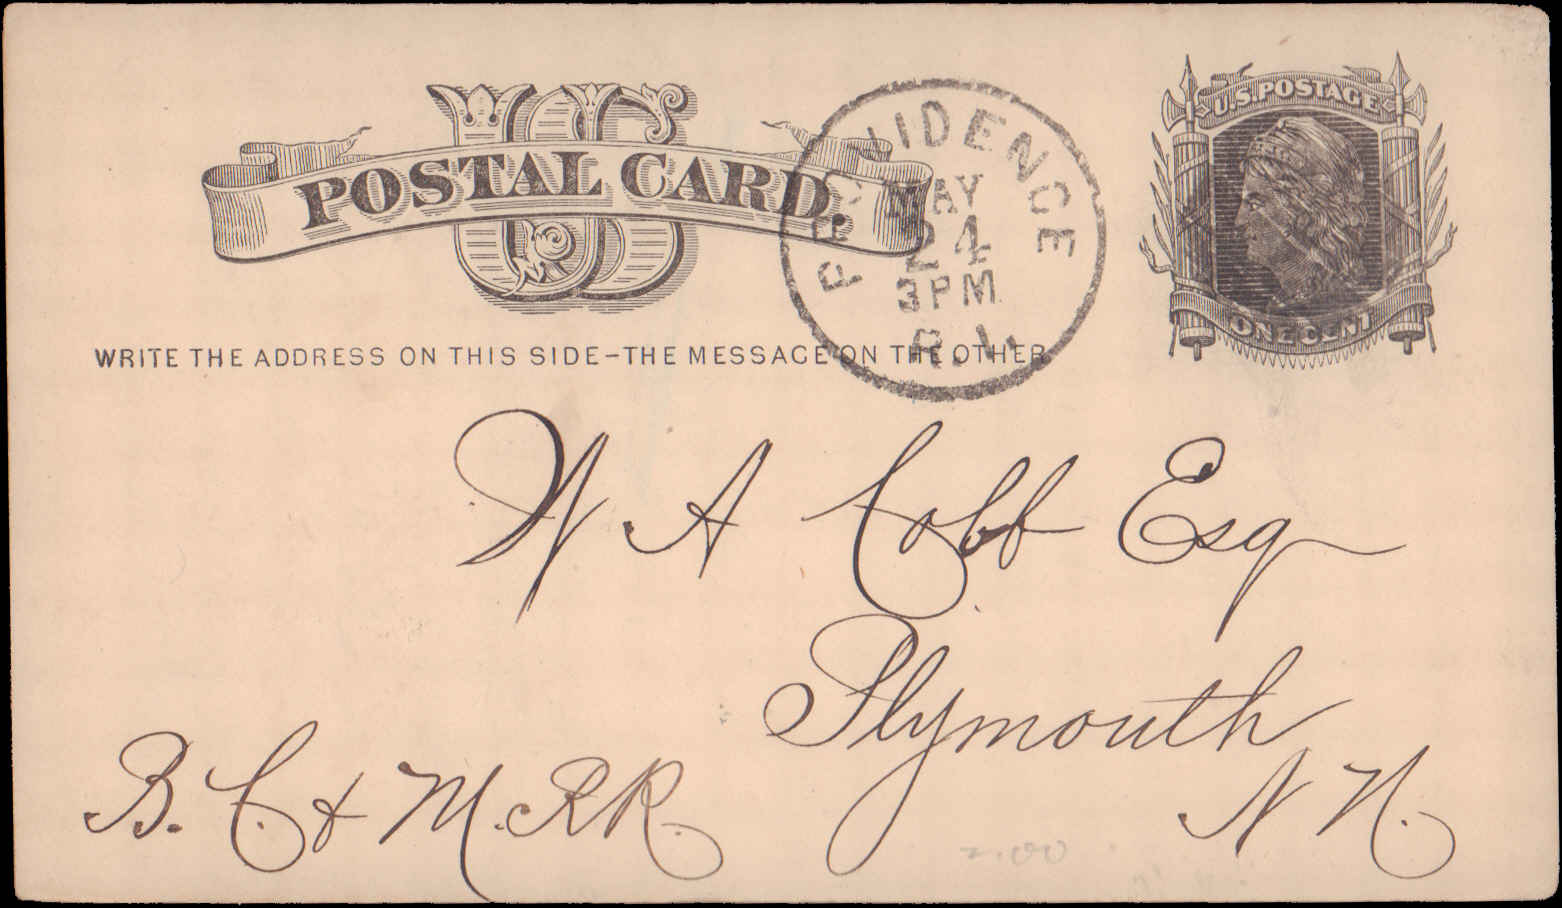 US
POSTAL CARD.
U.S. POSTAGE
ONE CENT
PROVIDENCE
MAY
24
3 PM
R.I.
WRITE THE ADDRESS ON THIS SIDE-THE MESSAGE ON THE OTHER
W A Cobb Esq
Plymouth
N H.
B. C. & M. RR.
2.00